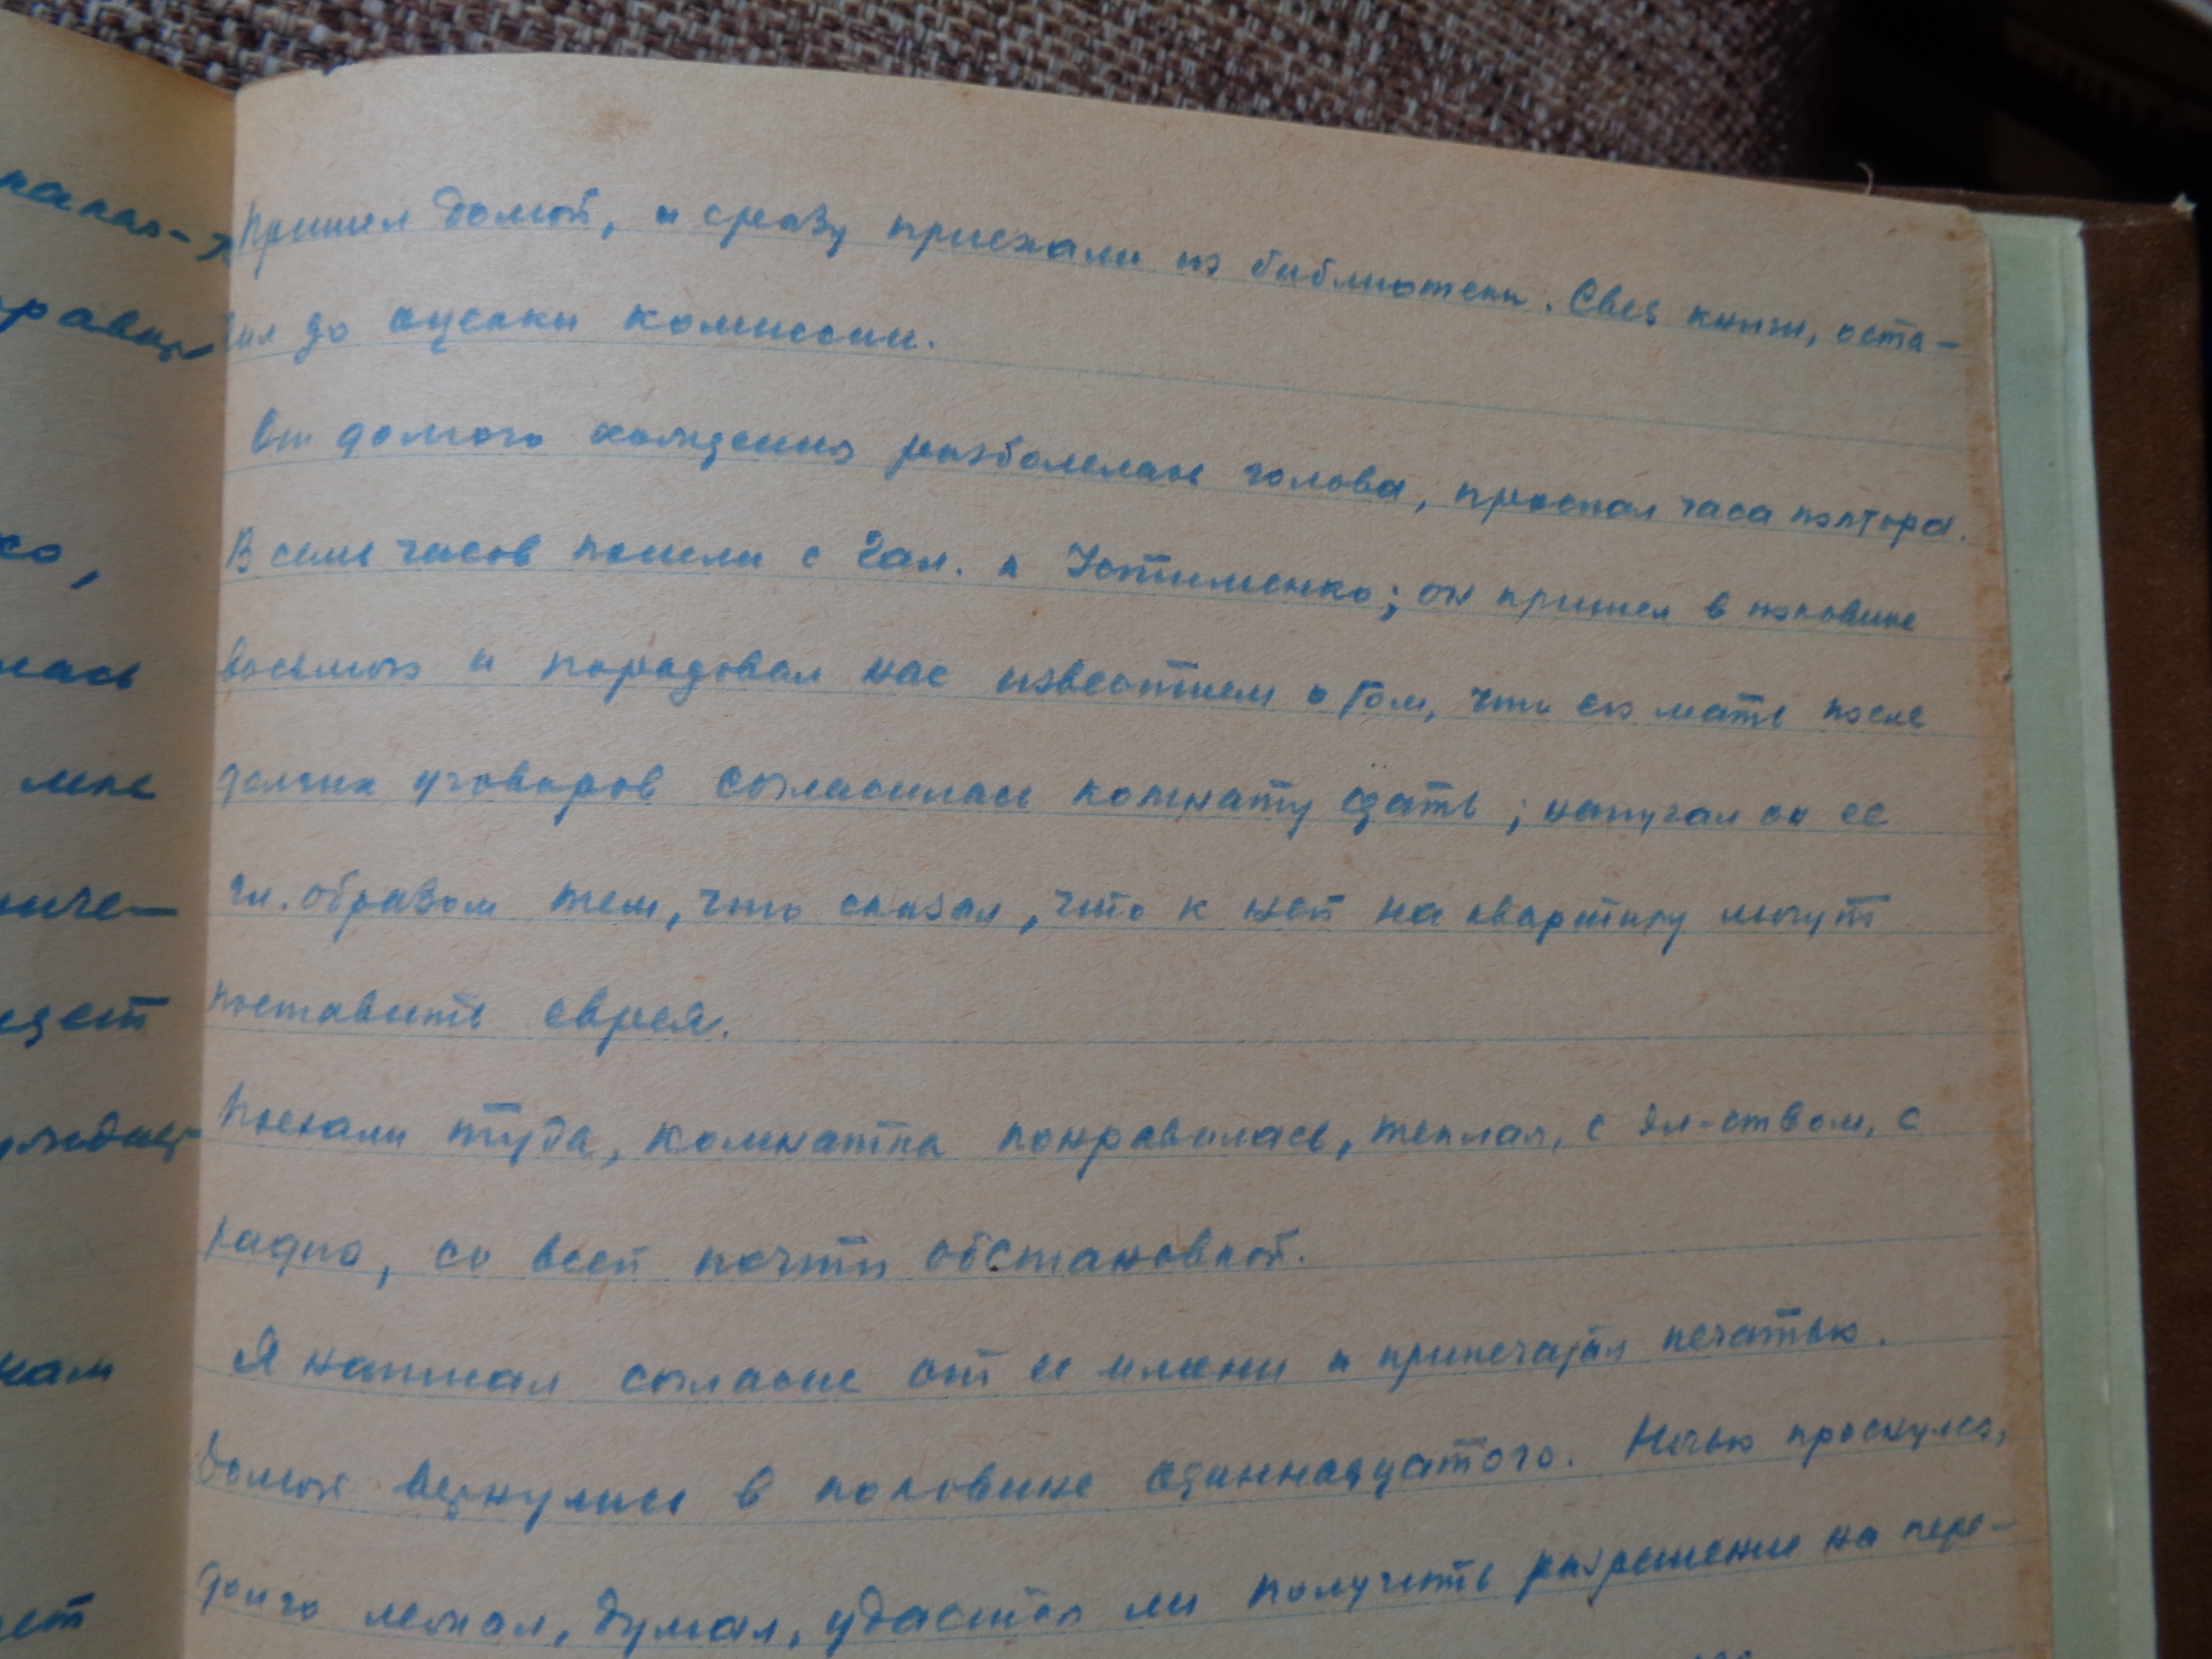 Пришел домой, и сразу приехали из библиотеки. Свез книги, оста-
вил до оценки комиссии.
От долгого хождения разболелась голова, проспал часа полтора.
В семь часов пошли с Гал. к Устименко; он пришел в половине
восьмого и порадовал нас известием о том, что его мать после
долгих уговоров согласилась комнату сдать; напугал он ее
гл. образом тем, что сказал, что к ней на квартиру могут
поставить еврея.
Поехали туда, комнатка понравилась, теплая, с эл-ством, с
радио, со всей почти обстановкой.
Я написал согласие от ее имени и припечатал печатью.
Домой вернулись в половине одиннадцатого. Ночью проснулся,
долго лежал, думал, удастся ли получить разрешение на пере-